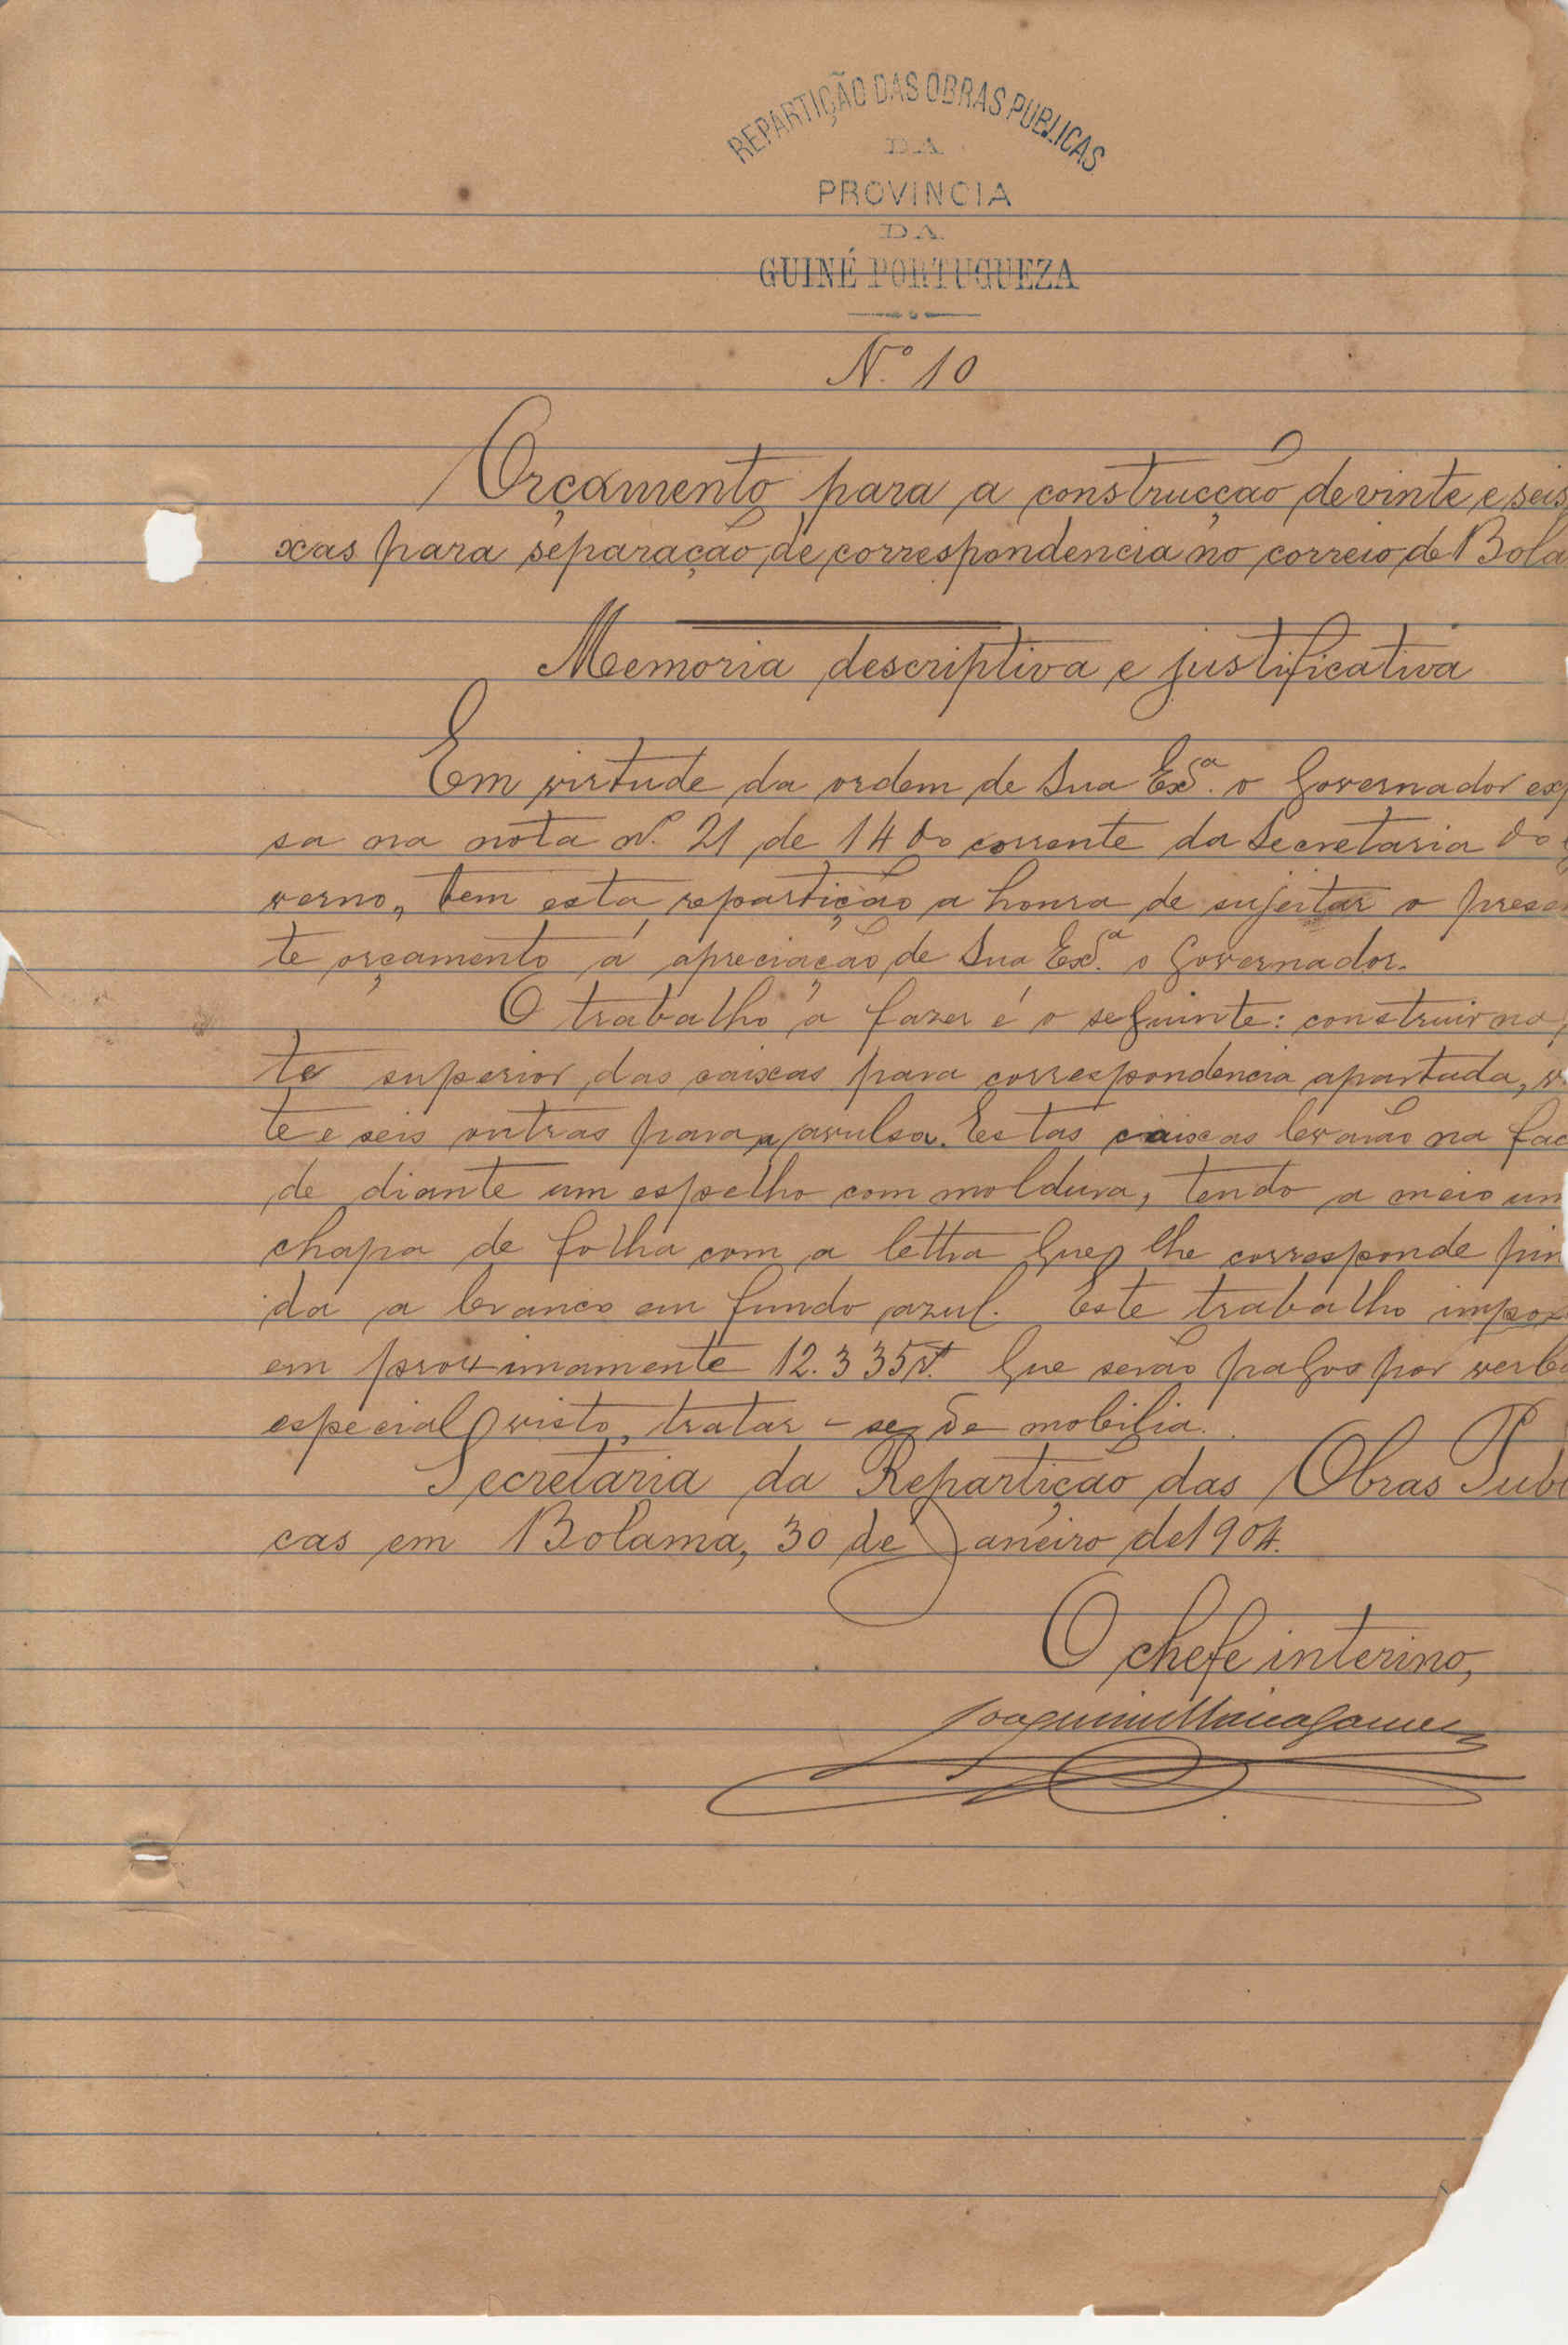 REPARTIÇÃO DAS OBRAS PUBLICAS
DA
PROVINCIA
DA
GUINÉ PORTUGUEZA
N.º 10
Orçamento para a construcção de vinte e seis
xas para separação de correspondencia no correio de Bola
Memoria descriptiva e justificativa
Em virtude da ordem de Sua Exª. o Governador ex
sa na nota nº. 21 de 14 do corrente da Secretaria do
verno, tem esta repartição a honra de sujeitar o presen
te orçamento á apreciação de Sua Exª. o Governador.
O trabalho a fazer é o seguinte: construir na
te superior das caixas para correspondencia apartada, v
te e seis outras para a avulsa. Estas caixas levarão na fac
de diante um espelho com moldura, tendo a meio um
chapa de folha com a lettra que lhe corresponde pin
da a branco em fundo azul. Este trabalho impor
em proximamente 12.335 rs. que serão pagos por verba
especial visto tratar-se de mobilia.
Secretaria da Repartição das Obras Publ
cas em Bolama, 30 de Janeiro de 1904.
O chefe interino,
Joaquim Maria Gomes